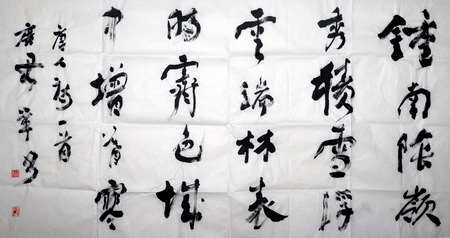 鍾南陰嶺
秀積雪浮
雲端林表
明霽色城
中增暮寒
唐人詩一首
唐